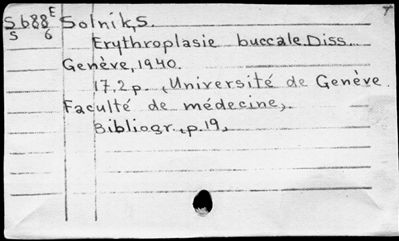 S688 E Solnik,S.
S 6 Erythroplasie buccale.Diss.
Genève,1940.
17,2p. (Université de Genève.
Faculté de médecine).
Bibliogr.,p.19.